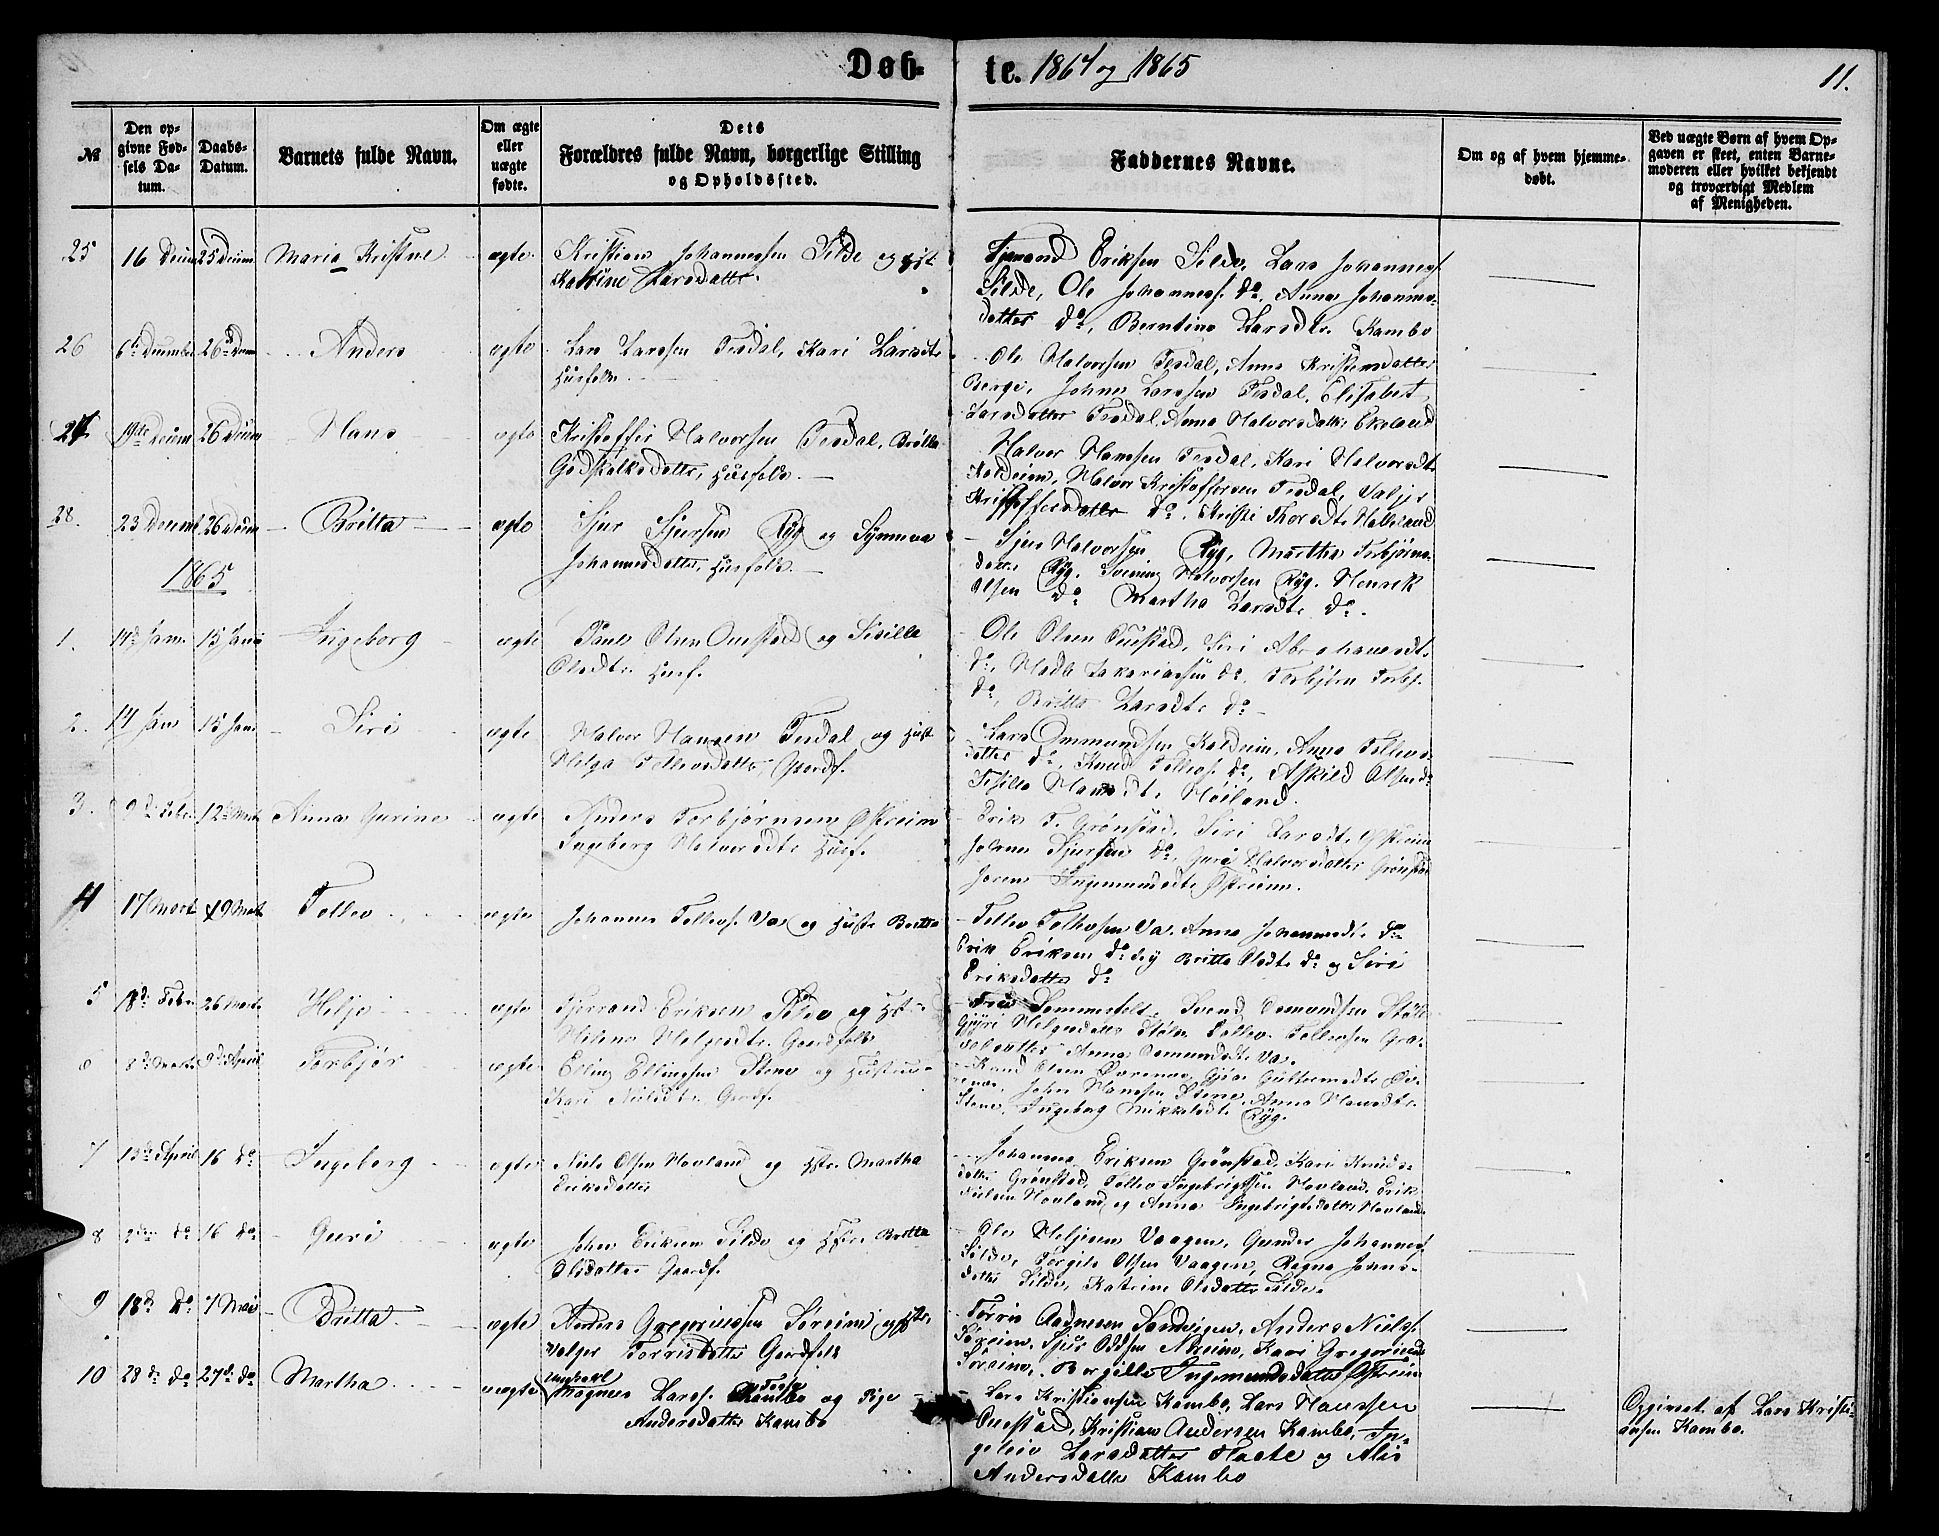 Døb- te. 1864 og 1865
11.
№
Den op-
givne Fød-
sels Da-
tum.
Daabs-
Datum.
Barnets fulde Navn.
Om ægte
eller
uægte
fødte.
Dets
Forældres fulde Navn, borgerlige Stilling
og Opholdssted.
Faddernes Navne.
Om og af hvem hjemme-
døbt.
Ved uægte Børn af hvem Op-
gaven er skeet, enten Barne-
moderen eller hvilket bekjendt
og troværdigt Medlem
af Menigheden.
25 16 Decem 25 Decem Maria Kristine ægte Kristian Johannessen Silde og
Katrine Larsdatter.
Eriksen Silde, Lars Johanness.
Silde, Ole Johanness. do, Anna Johannes-
datter do, Berntine Larsdtr. Kambo
26 6te Decembr 26de Decem Anders ægte Lars Larssen Tesdal, Kari Larsdtr
Husfolk.
Ole Halvorsen Tesdal, Anna Kristensdatter
Berge, Johan Larssen Tesdal, Elisabet
Larsdatter Tesdal, Anna Halvorsdatter Ekeland
27 19de Decem 26 Decem Hans ægte Kristoffer Halvorsen Tesdal, Britta
Godskalksdatter, Husfolk.
Halvor Hanssen Tesdal, Kari Halvorsdtr
Koldeim, Halvor Kristoffersen Tesdal, Valjer
Kristoffersdatter do, Kristi Thorsdtr
28. 23 Decembr 26 Decem Britta ægte Sjur Sjursen Ryg og Synneva
Johannesdatter, Husfolk.
Sjur Halvorsen Ryg, Martha Torbjørns-
datter Ryg, Halvorsen Ryg, Henrik
Olsen do Martha Larsdtr do.
1865
1. 14de Jan. 15 Jan Ingeborg ægte Paul Olsen Onestad og Sisille
Olsdtr. Husf.
Ole Olsen Onestad, Siri Abrahamsdtr
do, Zakariassen do, Torbjørn Torbj.
do, Britta Larsdtr do
2. 14 Jan 15 Jan Siri ægte Halvor Hansen Tesdal og Hust
Helga Tollevsdatter, Gaardf.
Lars Ommundsen Koldeim, Anna Tollevs-
datter do, Knud Tollevs. do, Askild Olsen do
Hansdtr Høiland.
3. 9de Febr 12te Marts Anna Gurine ægte Anders Torbjørnsen Østreim
Ingeborg Halvorsdtr Husf.
Erik T. Grønstad, Siri Larsdtr Østreim
Johan Sjursen do, Guri Halvorsdatter Grønstad
Ingemundsdtr Østreim.
4 17 Mart 19 Marts Tollev ægte Johannes Tollevs. Va og Hustr Britta
Tollev Tollevsen Va, Anna Johannesdtr do
Erik Eriksen do Britta Olsdtr do og Siri
Eriksdatter do
5 18de Febr 26 Marts Helje ægte Eriksen Silde og Hst
Helgesdtr. Gaardfolk
Svend Osmundsen Støle
Gjyri Helgesdatter Støle, Tollev Tollevsen
Anna Osmundsdtr Va.
6 8de Marts 9de April Torbjør ægte Elling Ellingsen Stene og Hustru
Kari Nielsdtr. Gaardf.
Knud Olsen Guttormsdtr
John Hanssen Stene, Anna Hansdtr
Stene, Ingeborg Mikkelsdtr Ryg.
7 13de April 16 do Ingeborg ægte Niels Olsen Hovland og Hstr. Martha
Eriksdatter
Johannes Eriksen Grønstad, Kari Knuds-
datter Grønstad, Tollev Ingebrigtsen Hovland, Erik
Nielsen Hovland og Anna Ingebrigtsdatter Hovland
8 2den do 16 do Guri ægte John Eriksen Silde og Hstr. Britta
Olsdatter Gaardf.
Ole Heljesen Vaagen, Gunder Johanness.
Silde, Torgils Olsen Vaagen, Ragna Johns-
datter Silde, Katrine Olsdatter Silde.
9 18de do 7 Mai Britta ægte Anders Gregoriussen Søreim og Hstr,
Valger Torrisdatter Gaardfolk
Torris Aadnesen Sandvigen, Anders Niels.
Søreim, Sjur Oddsen Kari Gregorius
Søreim, Bergille Ingemundsdatter Østreim
10 28de do 27de do Martha uægte Ungkarl
Magnus Larss. Kambo og Pige
Andersdatter Kambo
Lars Kristiansen Kambo, Lars Hanssen
Onestad, Kristian Andersen Kambo,
Larsdatter og Alis
Andersdatter Kambo
Opgivet af Lars Kristi-
ansen Kambo.